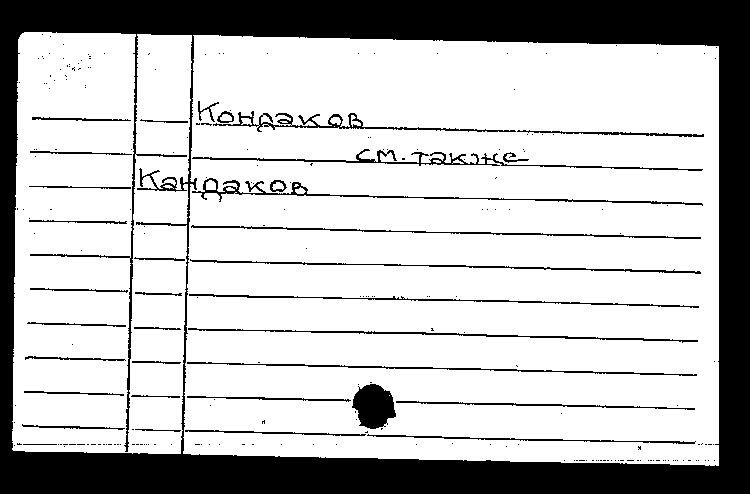 Кондаков
см. также
Кандаков